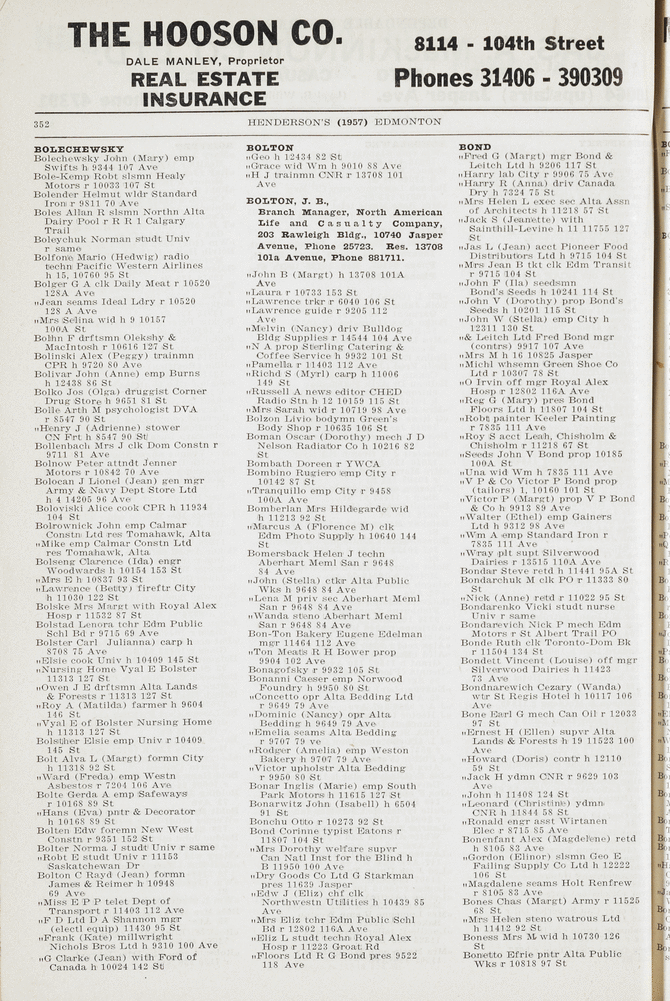 THE HOOSON CO.
DALE MANLEY, Proprietor
REAL ESTATE
INSURANCE
8114 - 104th Street
Phones 31406 - 390309
352
HENDERSON'S (1957) EDMONTON
BOLECHEWSKY
Bolechewsky John (Mary) emp
Swifts h 9344 107 Ave
Bole-Kemp Robt slsmn Healy
Motors r 10033 107 St
Bolender Helmut wldr Standard
Iron r 9811 70 Ave
Boles Allan R slsmn Northn Alta
Dairy Pool r R R 1 Calgary
Trail
Boleychuk Norman studt Univ
r same
Bolfone Mario (Hedwig) radio
techn Pacific Western Airlines
h 15, 10760 95 St
Bolger G A clk Daily Meat r 10520
128A Ave
„Jean seams Ideal Ldry r 10520
128 A Ave
„Mrs Selina wid h 9 10157
100A St
Bolhn F drftsmn Olekshy &
MacIntosh r 10616 127 St
Bolinski Alex (Peggy) trainmn
CPR h 9720 80 Ave
Bolivar John (Anne) emp Burns
h 12438 86 St
Bolko Jos (Olga) druggist Corner
Drug Store h 9651 81 St
Bolle Arth M psychologist DVA
r 8547 90 St
„Henry J (Adrienne) stower
CN Frt h 8547 90 St
Bollenbach Mrs J clk Dom Constn r
9711 81 Ave
Bolnow Peter attndt Jenner
Motors r 10842 70 Ave
Bolocan J Lionel (Jean) gen mgr
Army & Navy Dept Store Ltd
h 4 14205 96 Ave
Boloviski Alice cook CPR h 11934
104 St
Bolrownick John emp Calmar
Constn Ltd res Tomahawk, Alta
„Mike emp Calmar Constn Ltd
res Tomahawk, Alta
Bolseng Clarence (Ida) engr
Woodwards h 10154 153 St
„Mrs E h 10837 93 St
„Lawrence (Betty) fireftr City
h 11030 122 St
Bolske Mrs Margt with Royal Alex
Hosp r 11532 87 St
Bolstad Lenora tchr Edm Public
Schl Bd r 9715 69 Ave
Bolster Carl Julianna) carp h
8708 75 Ave
„Elsie cook Univ h 10409 145 St
„Nursing Home Vyal E Bolster
11313 127 St
„Owen J E drftsmn Alta Lands
& Forests r 11313 127 St
„Roy A (Matilda) farmer h 9604
146 St
„Vyal E of Bolster Nursing Home
h 11313 127 St
Bolsther Elsie emp Univ r 10409
145 St
Bolt Alva L (Margt) formn City
h 11318 92 St
„Ward (Freda) emp Westn
Asbestos r 7204 106 Ave
Bolte Gerda A emp Safeways
r 10168 89 St
„Hans (Eva) pntr & Decorator
h 10168 89 St
Bolten Edw foremn New West
Constn r 9351 152 St
Bolter Norma J studt Univ r same
„Robt E studt Univ r 11153
Saskatchewan Dr
Bolton C Rayd (Jean) formn
James & Reimer h 10948
69 Ave
„Miss E P P telet Dept of
Transport r 11403 112 Ave
„F D Ltd D A Shannon mgr
(electl equip) 11430 95 St
„Frank (Kate) millwright
Nichols Bros Ltd h 9310 100 Ave
„G Clarke (Jean) with Ford of
Canada h 10024 142 St
BOLTON
„Geo h 12434 82 St
„Grace wid Wm h 9010 88 Ave
„H J trainmn CNR r 13708 101
Ave
BOLTON, J. B.,
Branch Manager, North American
Life and Casualty Company,
203 Rawleigh Bldg., 10740 Jasper
Avenue, Phone 25723. Res. 13708
101a Avenue, Phone 881711.
„John B (Margt) h 13708 101A
Ave
„Laura r 10733 153 St
„Lawrence trkr r 6040 106 St
„Lawrence guide r 9205 112
Ave
„Melvin (Nancy) driv Bulldog
Bldg Supplies r 14544 104 Ave
„N A prop Sterling Catering &
Coffee Service h 9932 101 St
„Pamella r 11403 112 Ave
„Richd S (Myrl) carp h 11006
149 St
„Russell A news editor CHED
Radio Stn h 12 10159 115 St
„Mrs Sarah wid r 10719 98 Ave
Bolzon Livio bodymn Green's
Body Shop r 10635 106 St
Boman Oscar (Dorothy) mech J D
Nelson Radiator Co h 10216 82
St
Bombath Doreen r YWCA
Bombino Rugiero emp City r
10142 87 St
„Tranquillo emp City r 9458
100A Ave
Bomberlan Mrs Hildegarde wid
h 11213 92 St
„Marcus A (Florence M) clk
Edm Photo Supply h 10640 144
St
Bomersback Helen J techn
Aberhart Meml San r 9648
84 Ave
„John (Stella) ctkr Alta Public
Wks h 9648 84 Ave
„Lena M priv sec Aberhart Meml
San r 9648 84 Ave
„Wanda steno Aberhart Meml
San r 9648 84 Ave
Bon-Ton Bakery Eugene Edelman
mgr 11464 112 Ave
„Ton Meats R H Bower prop
9904 102 Ave
Bonagofsky r 9932 105 St
Bonanni Caeser emp Norwood
Foundry h 9950 80 St
„Concetto opr Alta Bedding Ltd
r 9649 79 Ave
„Dominic (Nancy) opr Alta
Bedding h 9649 79 Ave
„Emelia seams Alta Bedding
r 9707 79 ve
„Rodger (Amelia) emp Weston
Bakery h 9707 79 Ave
„Victor upholstr Alta Bedding
r 9950 80 St
Bonar Inglis (Marie) emp South
Park Motors h 11615 127 St
Bonarwitz John (Isabell) h 6504
91 St
Bonchu Otto r 10273 92 St
Bond Corinne typist Eatons r
11807 104 St
„Mrs Dorothy welfare supvr
Can Natl Inst for the Blind h
B 11950 100 Ave
„Dry Goods Co Ltd G Starkman
pres 11639 Jasper
„Edw J (Eliz) chf clk
Northwestn Utilities h 10439 85
Ave
„Mrs Eliz tchr Edm Public Schl
Bd r 12802 116A Ave
„Eliz L studt techn Royal Alex
Hosp r 11223 Groat Rd
„Floors Ltd R G Bond pres 9522
118 Ave
BOND
„Fred G (Margt) mgr Bond &
Leitch Ltd h 9206 117 St
„Harry lab City r 9906 75 Ave
„Harry R (Anna) driv Canada
Dry h 7324 75 St
„Mrs Helen L exec sec Alta Assn
of Architects h 11218 57 St
„Jack S (Jeanette) with
Sainthill-Levine h 11 11755 127
St
„Jas L (Jean) acct Pioneer Food
Distributors Ltd h 9715 104 St
„Mrs Jean B tkt clk Edm Transit
r 9715 104 St
„John F (Ila) seedsmn
Bond's Seeds h 10241 114 St
„John V (Dorothy) prop Bond's
Seeds h 10201 115 St
„John W (Stella) emp City h
12311 130 St
„& Leitch Ltd Fred Bond mgr
(contrs) 9917 107 Ave
„Mrs M h 16 10825 Jasper
„Michl whsemn Green Shoe Co
Ltd r 10307 78 St
„O Irvin off mgr Royal Alex
Hosp r 12802 116A Ave
„Reg G (Mary) pres Bond
Floors Ltd h 11807 104 St
„Robt painter Keeler Painting
r 7835 111 Ave
„Roy S acct Leah, Chisholm &
Chisholm r 11218 67 St
„Seeds John V Bond prop 10185
100A St
„Una wid Wm h 7835 111 Ave
„V P & Co Victor P Bond prop
(tailors) 1, 10160 101 St
„Victor P (Margt) prop V P Bond
& Co h 9913 89 Ave
„Walter (Ethel) emp Gainers
Ltd h 9312 98 Ave
„Wm A emp Standard Iron r
7835 111 Ave
„Wray plt supt Silverwood
Dairies r 13515 110A Ave
Bondar Steve retd h 11441 95A St
Bondarchuk M clk PO r 11333 80
St
„Nick (Anne) retd r 11022 95 St
Bondarenko Vicki studt nurse
Univ r same
Bondarevich Nick P mech Edm
Motors r St Albert Trail PO
Bonde Ruth clk Toronto-Dom Bk
r 11504 134 St
Bondett Vincent (Louise) off mgr
Silverwood Dairies h 11423
73 Ave
Bondnarewich Cezary (Wanda)
wtr St Regis Hotel h 10117 106
Ave
Bone Earl G mech Can Oil r 12033
97 St
„Ernest H (Ellen) supvr Alta
Lands & Forests h 19 11523 100
Ave
„Howard (Doris) contr h 12110
59 St
„Jack H ydmn CNR r 9629 103
Ave
„John h 11408 124 St
„Leonard (Christine) ydmn
CNR h 11844 58 St
„Ronald engr asst Wirtanen
Elec r 8715 85 Ave
Bonenfant Alex (Magdelene) retd
h 8105 83 Ave
„Gordon (Elinor) slsmn Geo E
Failing Supply Co Ltd h 12222
106 St
„Magdalene seams Holt Renfrew
r 8105 83 Ave
Bones Chas (Margt) Army r 11525
68 St
„Mrs Helen steno watrous Ltd
h 11412 92 St
Boness Mrs M wid h 10730 126
St
Bonetto Efrie pntr Alta Public
Wks r 10818 97 St